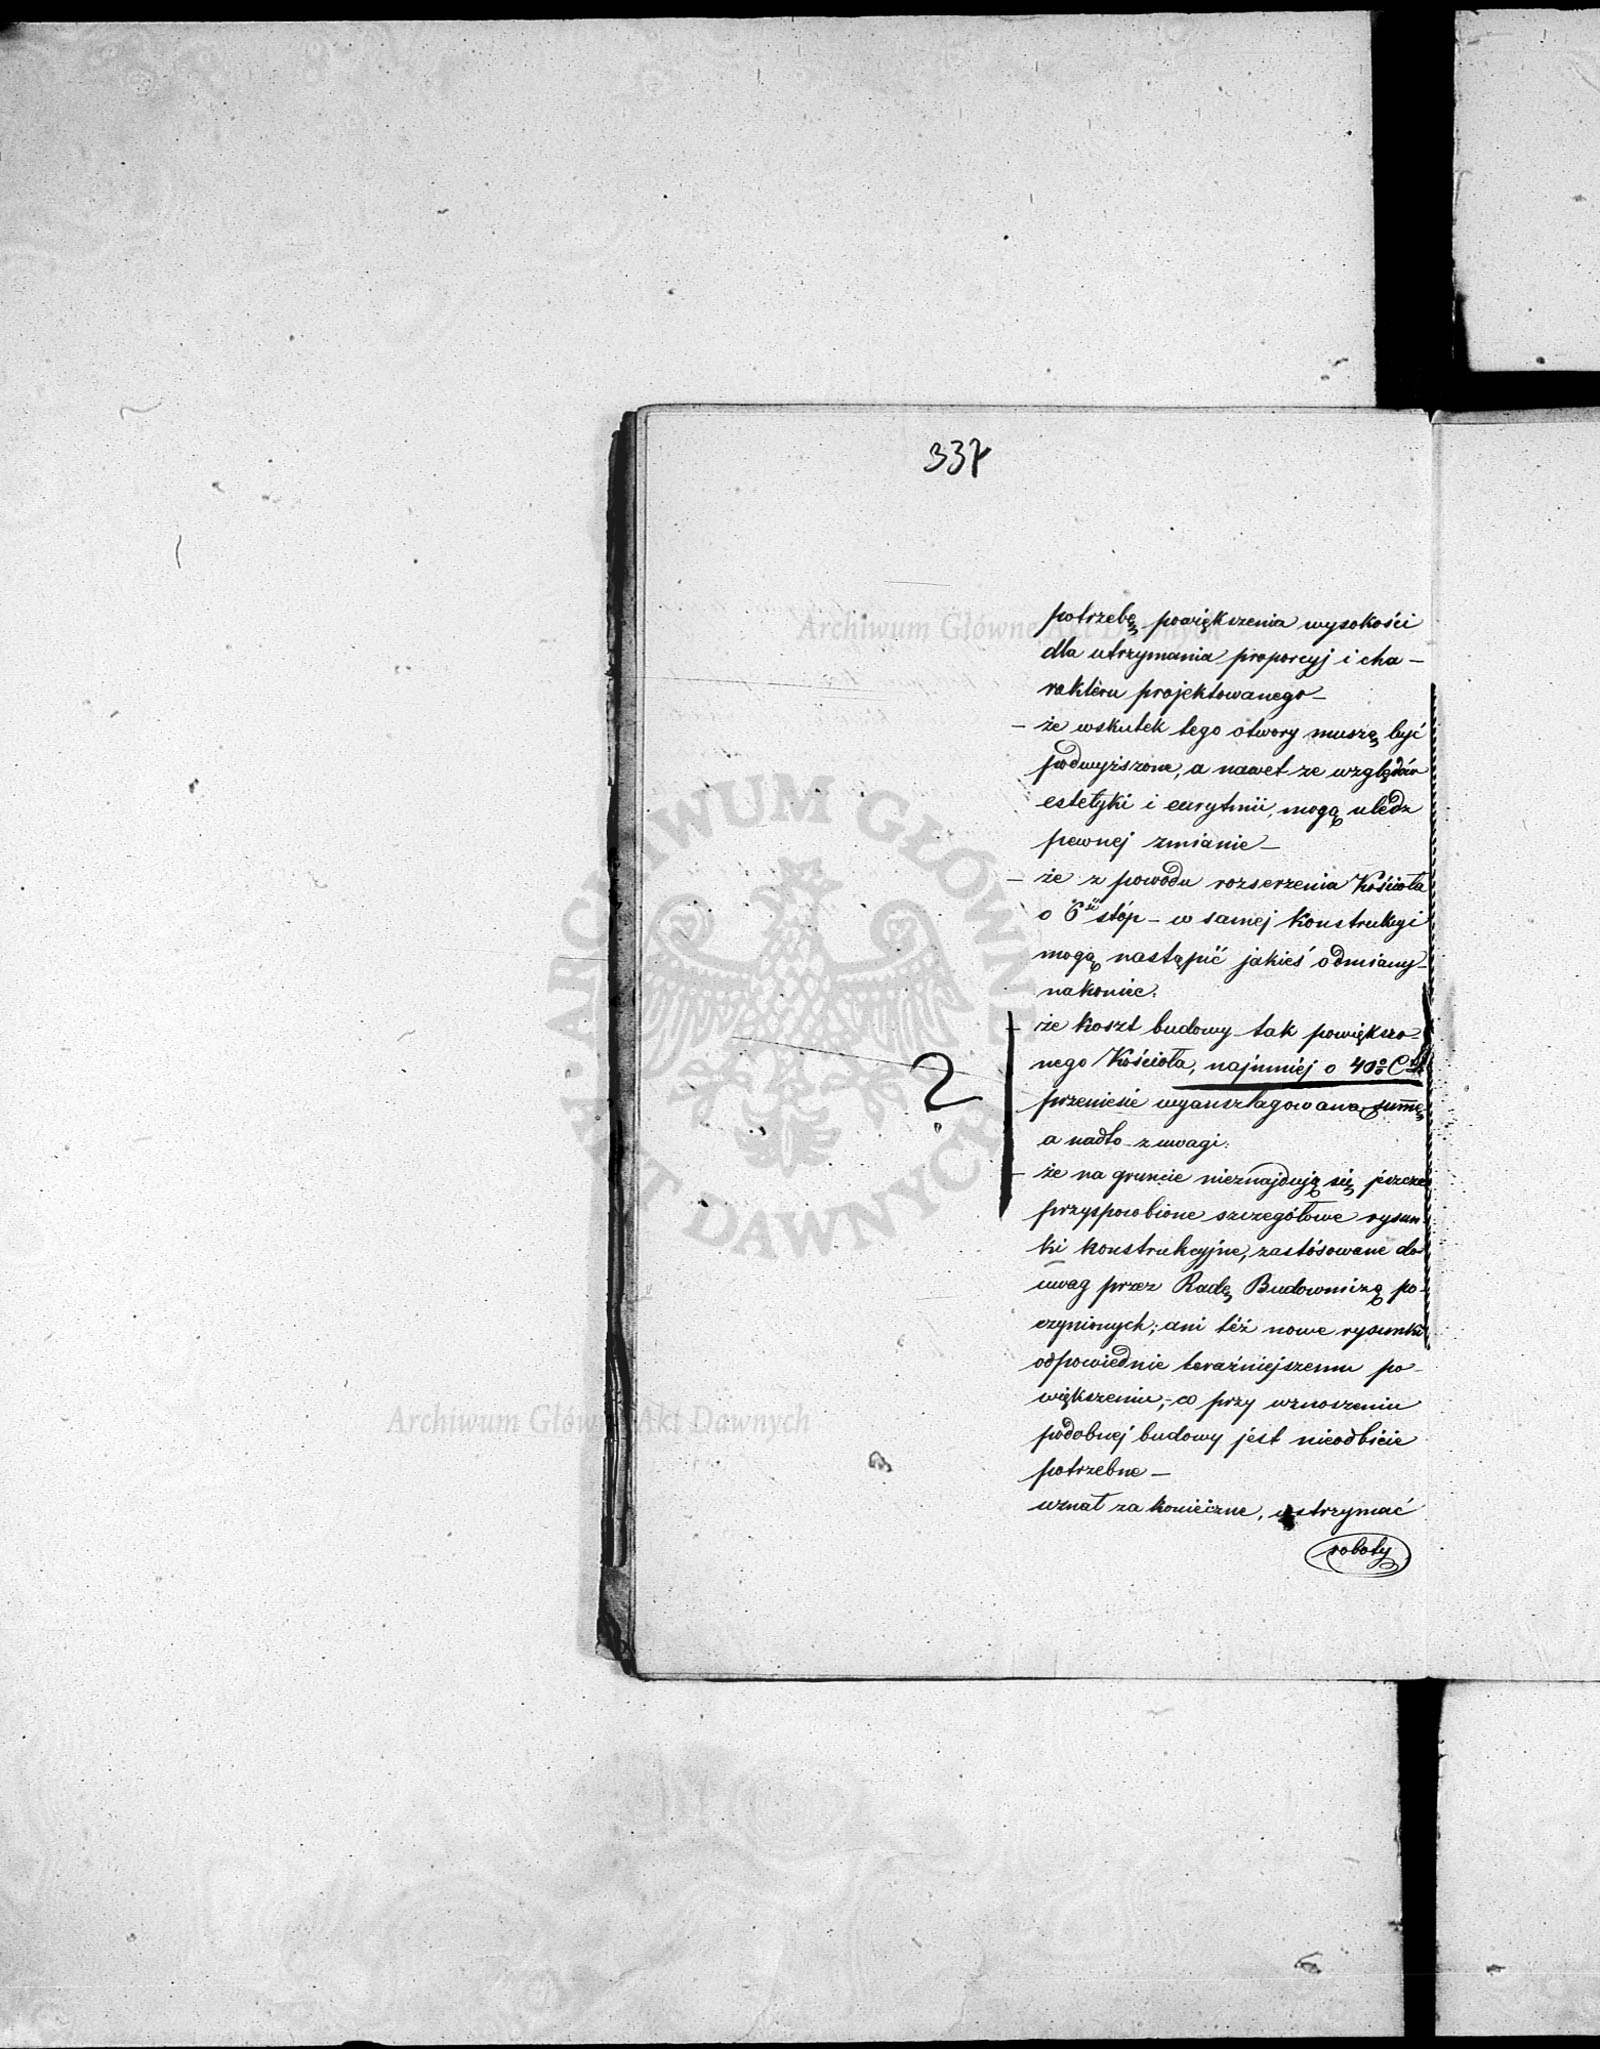 337
potrzebę powiększenia wysokości
dla utrzymania proporcyj i cha-
raktéru projektowanego –
– że wskutek tego otwory muszą być
podwyższone, a nawet ze względów
estetyki i eurytmii, mogą uledz
pewnej zmianie –
– że z powodu rozserzenia Kościoła
o 6ść stóp – w samej konstrukcyi
mogą nastąpić jakieś odmiany –
nakoniec:
– że koszt budowy tak powiększo-
nego Kościoła, najmniéj o 40%
przeniesie wyanszlagowaną summę
a nadto z uwagi:
– że na gruncie nieznajdują się jeszcze
przysposobione szczegółowe rysun-
ki konstrukcyjne, zastósowane do
uwag przez Radę Budowniczą po-
czynionych; ani téż nowe rysunki
odpowiednie teraźniejszemu po-
większeniu, – co przy wznoszeniu
podobnéj budowy jest nieodbicie
potrzebne –
uznał za konieczne, wstrzymać
roboty
?
ARCHIWUM GŁÓWNE AKT DAWNYCH
Archiwum Główne Akt Dawnych
Archiwum Główne Akt Dawnych